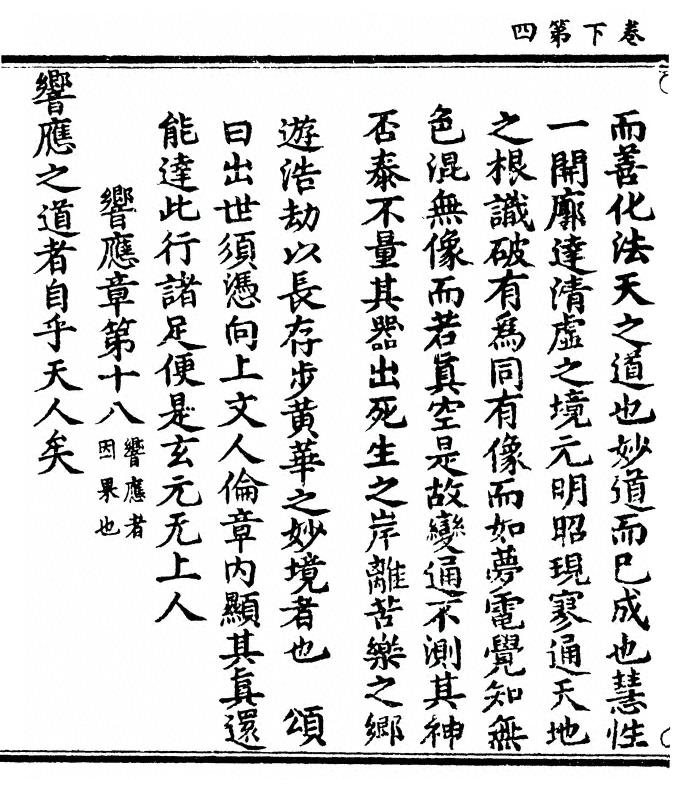 卷下第四
而善化法天之道也妙道而巳成也慧性
一開廓達清虛之境元明昭現寥通天地
之根識破有爲同有像而如夢電覺知無
色混無像而若眞空是故變通不測其神
否泰不量其器出死生之岸離苦樂之鄉
遊浩劫以長存步黄華之妙境者也　頌
曰出世須憑向上文人倫章內顯其眞還
能達此行諸足便是玄元无上人
響應章第十八響應者因果也
響應之道者自乎天人矣